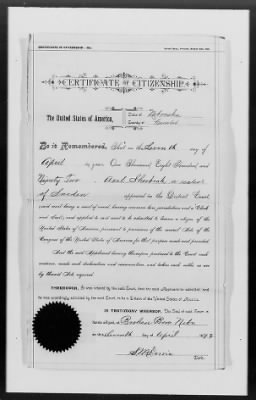 CERTIFICATE OF CITIZENSHIP.
State of Nebraska
The United States of America,
County
Be it Remembered, That on the Seventh day of
April in year One Thousand Eight Hundred and
Ninety Two Axel a native
of Sweden appeared in the District Court,
said court being a court of record, having common law jurisdiction and a Clerk
and Seal, and applied to said court to be admitted to become a citizen of the
United States of America pursuant to provisions of the several Acts of the
Congress of the United States of America for that purpose made and provided.
And the said Applicant having thereupon produced to the Court such
evidence, made such declaration and renunciation, and taken such oaths as are
by the said Acts required.
THEREUPON, It was ordered by the said Court, that the said Applicant be admitted, and
he was accordingly admitted by the said Court, to be a Citizen of the United States of America.
IN TESTIMONY WHEREOF, The Seal of said Court is
hereto affixed, at Broken Bow, Nebr
on seventh day of April 1892
Clerk